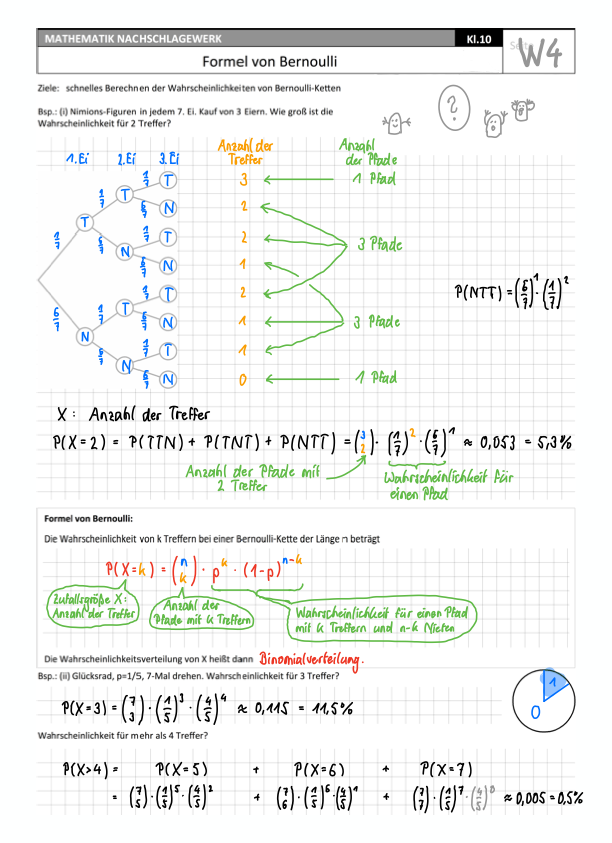 MATHEMATIK NACHSCHLAGEWERK Kl.10 Seite W4
Formel von Bernoulli
Ziele: schnelles Berechnen der Wahrscheinlichkeiten von Bernoulli-Ketten
Bsp.: (i) Nimions-Figuren in jedem 7. Ei. Kauf von 3 Eiern. Wie groß ist die
Wahrscheinlichkeit für 2 Treffer?
?
1. Ei 2. Ei 3. Ei Anzahl der Treffer Anzahl der Pfade
1/7 T 3 1 Pfad
1/7 T 6/7 N 2
1/7 T 1/7 T 2
6/7 N 6/7 N 1 3 Pfade
1/7 T 2
6/7 N 1/7 T 6/7 N 1 3 Pfade
1/7 T 1
6/7 N 6/7 N 0 1 Pfad
P(NTT) = (6/7)^1 · (1/7)^2
X: Anzahl der Treffer
P(X=2) = P(TTN) + P(TNT) + P(NTT) = (3 2) · (1/7)^2 · (6/7)^1 ≈ 0,053 = 5,3%
Anzahl der Pfade mit
2 Treffer
Wahrscheinlichkeit für
einen Pfad
Formel von Bernoulli:
Die Wahrscheinlichkeit von k Treffern bei einer Bernoulli-Kette der Länge n beträgt
P(X=k) = (n k) · p^k · (1-p)^n-k
Zufallsgröße X:
Anzahl der Treffer
Anzahl der
Pfade mit k Treffern
Wahrscheinlichkeit für einen Pfad
mit k Treffern und n-k Nieten
Die Wahrscheinlichkeitsverteilung von X heißt dann Binomialverteilung.
Bsp.: (ii) Glücksrad, p=1/5, 7-Mal drehen. Wahrscheinlichkeit für 3 Treffer?
P(X=3) = (7 3) · (1/5)^3 · (4/5)^4 ≈ 0,115 = 11,5%
1
0
Wahrscheinlichkeit für mehr als 4 Treffer?
P(X>4) = P(X=5) + P(X=6) + P(X=7)
= (7 5) · (1/5)^5 · (4/5)^2 + (7 6) · (1/5)^6 · (4/5)^1 + (7 7) · (1/5)^7 · (4/5)^0 ≈ 0,005 = 0,5%